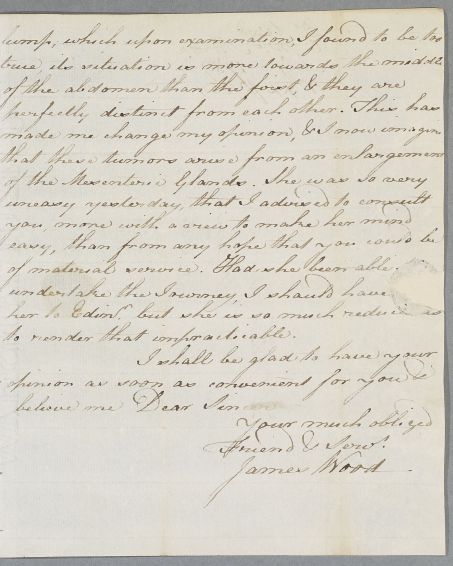 lump, which upon examination, I found to be too
true its situation is more towards the middle
of the abdomen than the first, & they are
perfectly distinct from each other. This has
made me change my opinion, & I now imagin
that these tumors arise from an enlargement
of the Mesenteric Glands. She was so very
uneasy yesterday, that I advised to consult
you, more with a view to make her mind
easy, than from any hope that you could be
of material service. Had she been able
undertake the Journey, I should have
her to Edinr. but she is so much reduced as
to render that impracticable.
I shall be glad to have your
opinion as soon as convenient for you &
believe me Dear Sir
Your much obliged
Friend & Servt.
James Wood